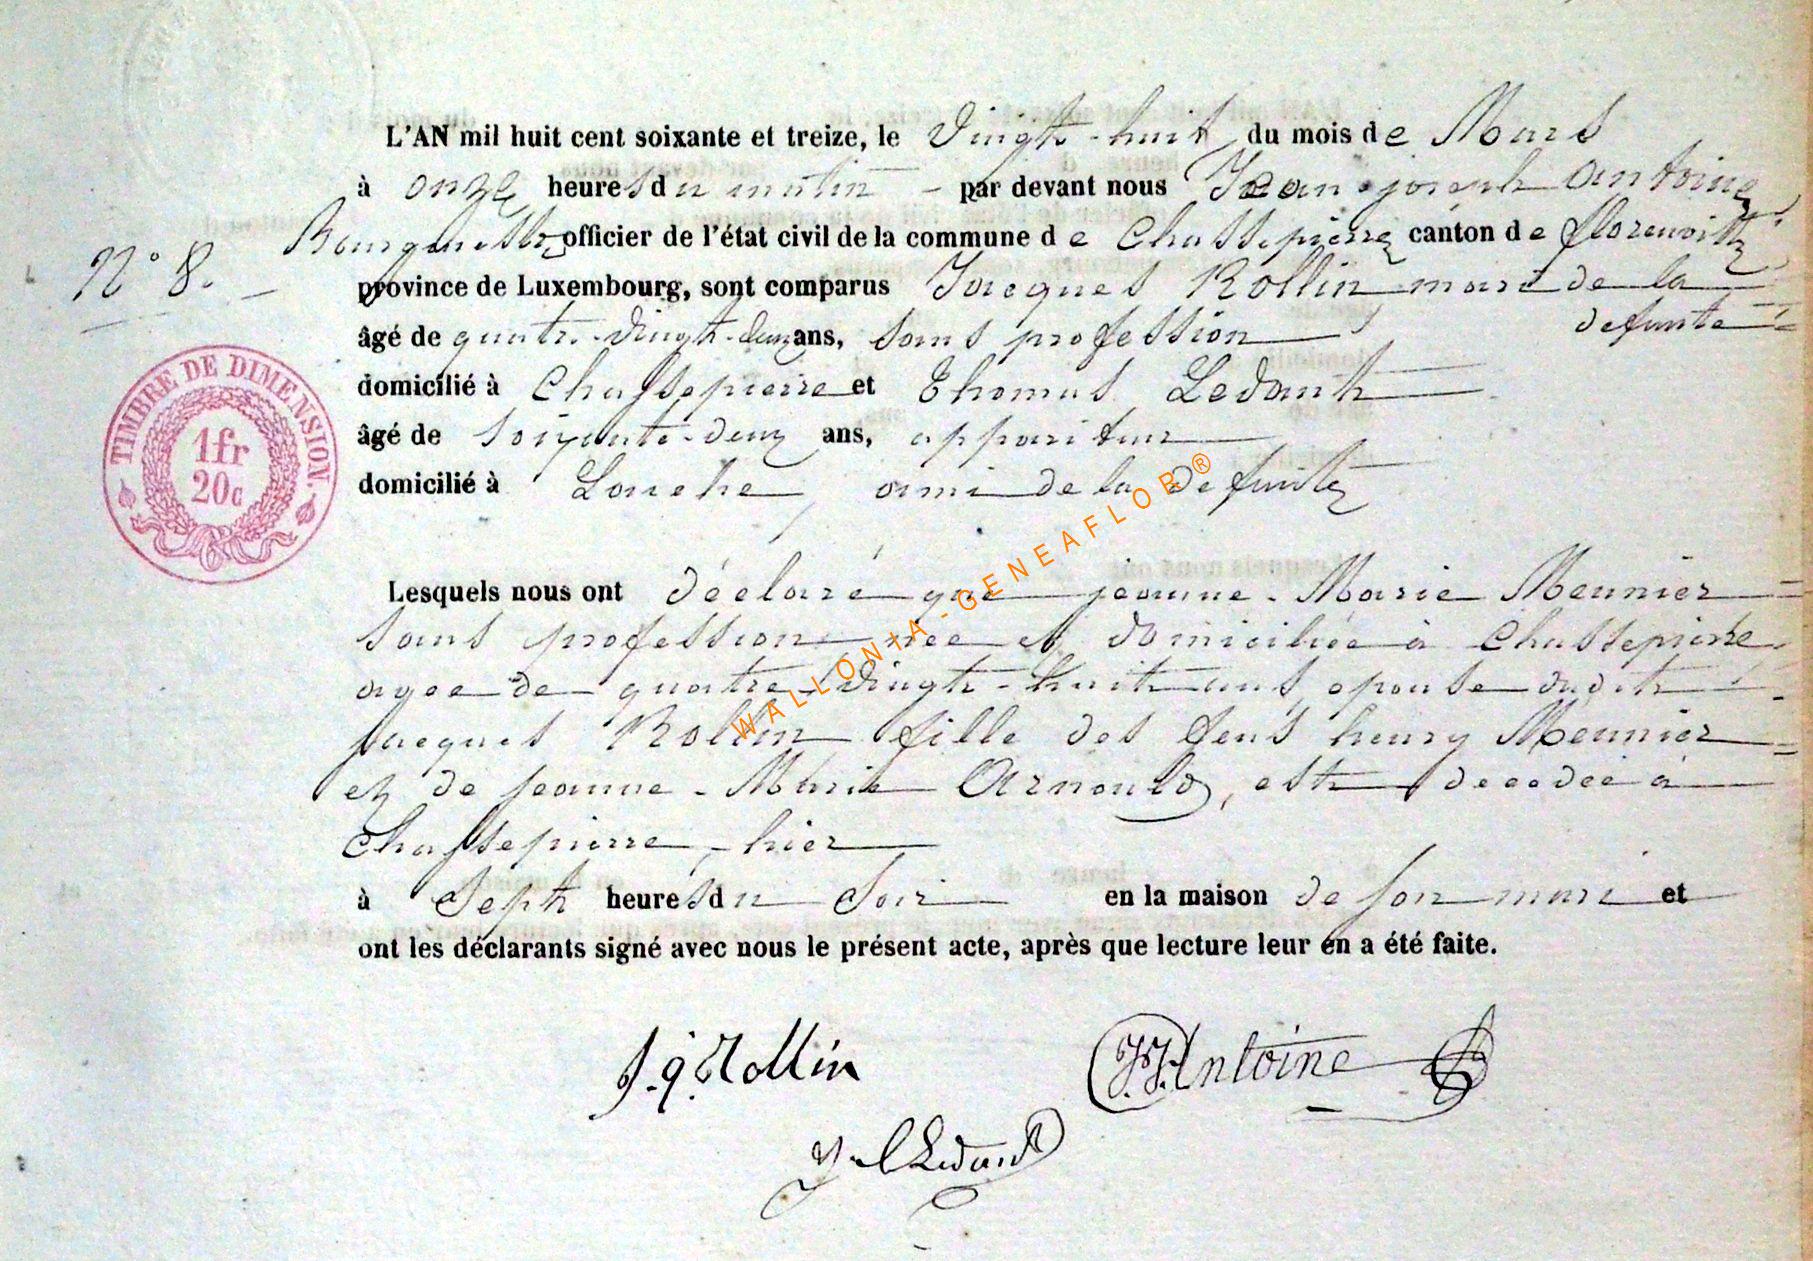 L'AN mil huit cent soixante et treize, le Vingt-huit du mois de Mars
à onze heures du matin - par devant nous Jean-joseph Antoine
Bourgmestre officier de l'état civil de la commune de Chassepierre canton de florenville
N° 8.
province de Luxembourg, sont comparus Jacques Rollin mari de la
defunte
âgé de quatre-Vingt-deux ans, sans profession
domicilié à Chassepierre et Thomas Ledant
âgé de soixante-deux ans, appariteur
domicilié à ami de la defunte
TIMBRE DE DIMENSION.
1fr
20c
Lesquels nous ont déclaré que jeanne-Marie Meunier
sans profession née et domiciliée à Chassepierre
agee de quatre-Vingt-huit ans, epouse dudit
jacques Rollin fille des feus henry Meunier
et de jeanne-Marie Arnould, est decedée à
Chassepierre, hier
à Sept heures du Soir en la maison de son mari et
ont les déclarants signé avec nous le présent acte, après que lecture leur en a été faite.
J.q. Rollin
J.J. Antoine
Ledant
WALLONIA-GENEAFLOR®